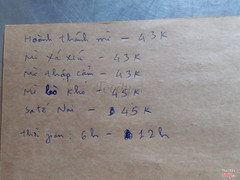 Hoành thánh mì - 43K
Mì xá xíu - 43K
Mì thập cẩm - 43K
Mì khô - 45K
Sa tế Nai - 45K
thời gian: 6h - 12h